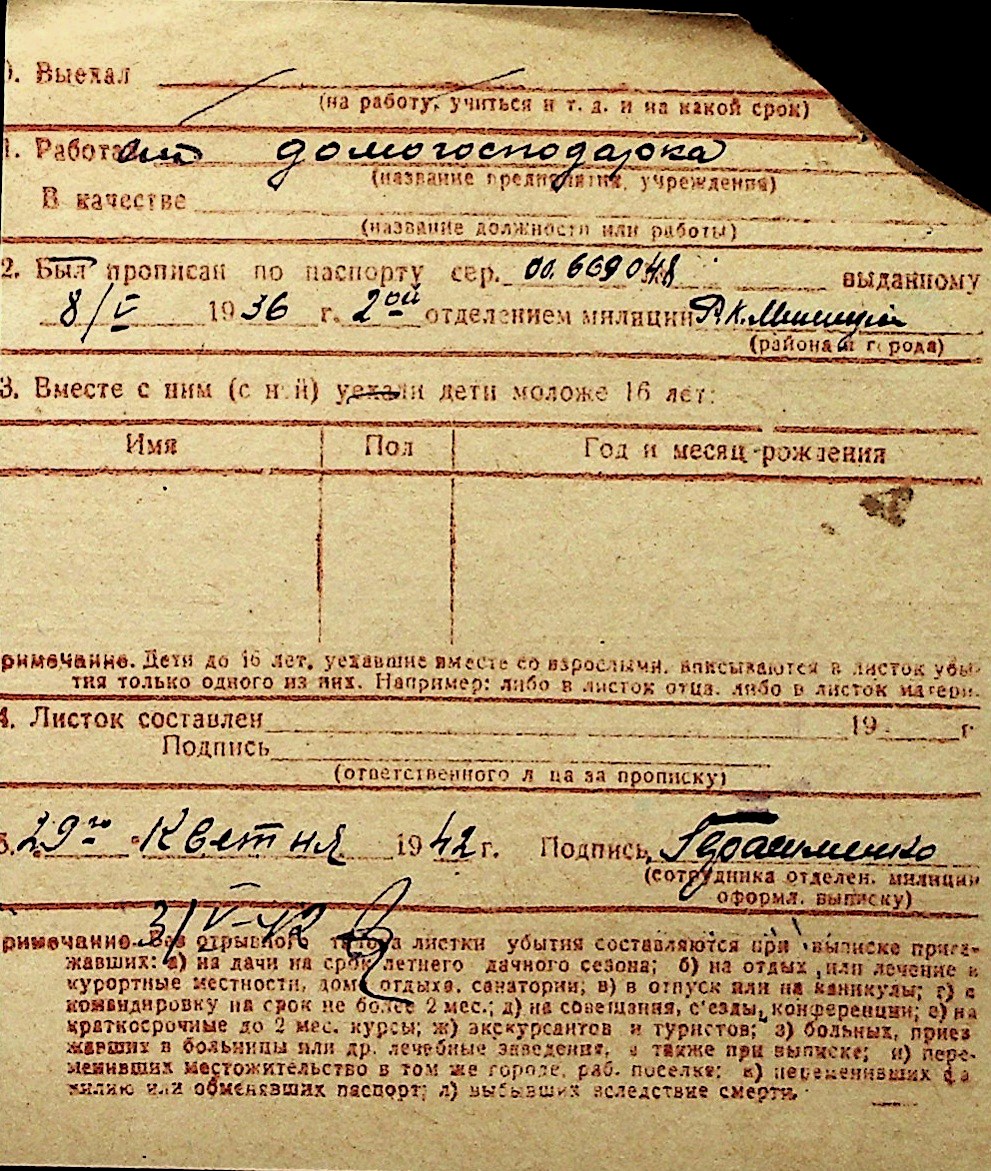 ). Выехал
(на работу, учиться и т. д. и на какой срок)
1. Работа домогосподарка
(название предприятия, учреждения)
В качестве
(название должности или работы)
2. Был прописан по паспорту сер. 00. 669048 выданному
8/V 1936 г. 2ой отделением милиции Р.К. Милиции
(района и города)
3. Вместе с ним (с ней) уехали дети моложе 16 лет:
Имя Пол Год и месяц рождения
римечание. Дети до 16 лет, уехавшие вместе со взрослыми, вписываются в листок убы-
тия только одного из них. Например: либо в листок отца, либо в листок матери.
4. Листок составлен 19 г.
Подпись
(ответственного лица за прописку)
5. 29го Квітня 1942 г. Подпись Герасименко
(сотрудника отделен. милиции
оформл. выписку)
3/V-42
римечание. Без отрывного талона листки убытия составляются при выписке приез-
жавших: а) на дачи на срок летнего дачного сезона; б) на отдых или лечение в
курортные местности, дом отдыха, санатории; в) в отпуск или на каникулы; г) в
командировку на срок не более 2 мес.; д) на совещания, с'езды, конференции; е) на
краткосрочные до 2 мес. курсы; ж) экскурсантов и туристов; з) больных, приез
жавших в больницы или др. лечебные заведения, а также при выписке; и) пере-
менивших местожительство в том же городе, раб. поселке; к) переменивших фа
милию или обменявших паспорт; л) выбывших вследствие смерти.